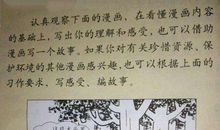 认真观察下面的漫画,在看懂漫画内容
的基础上,写出你的理解和感受,也可以借助
漫画写一个故事。如果你对有关珍惜资源、保
护环境的其他漫画感兴趣,也可以根据上面的
习作要求,写感受、编故事。